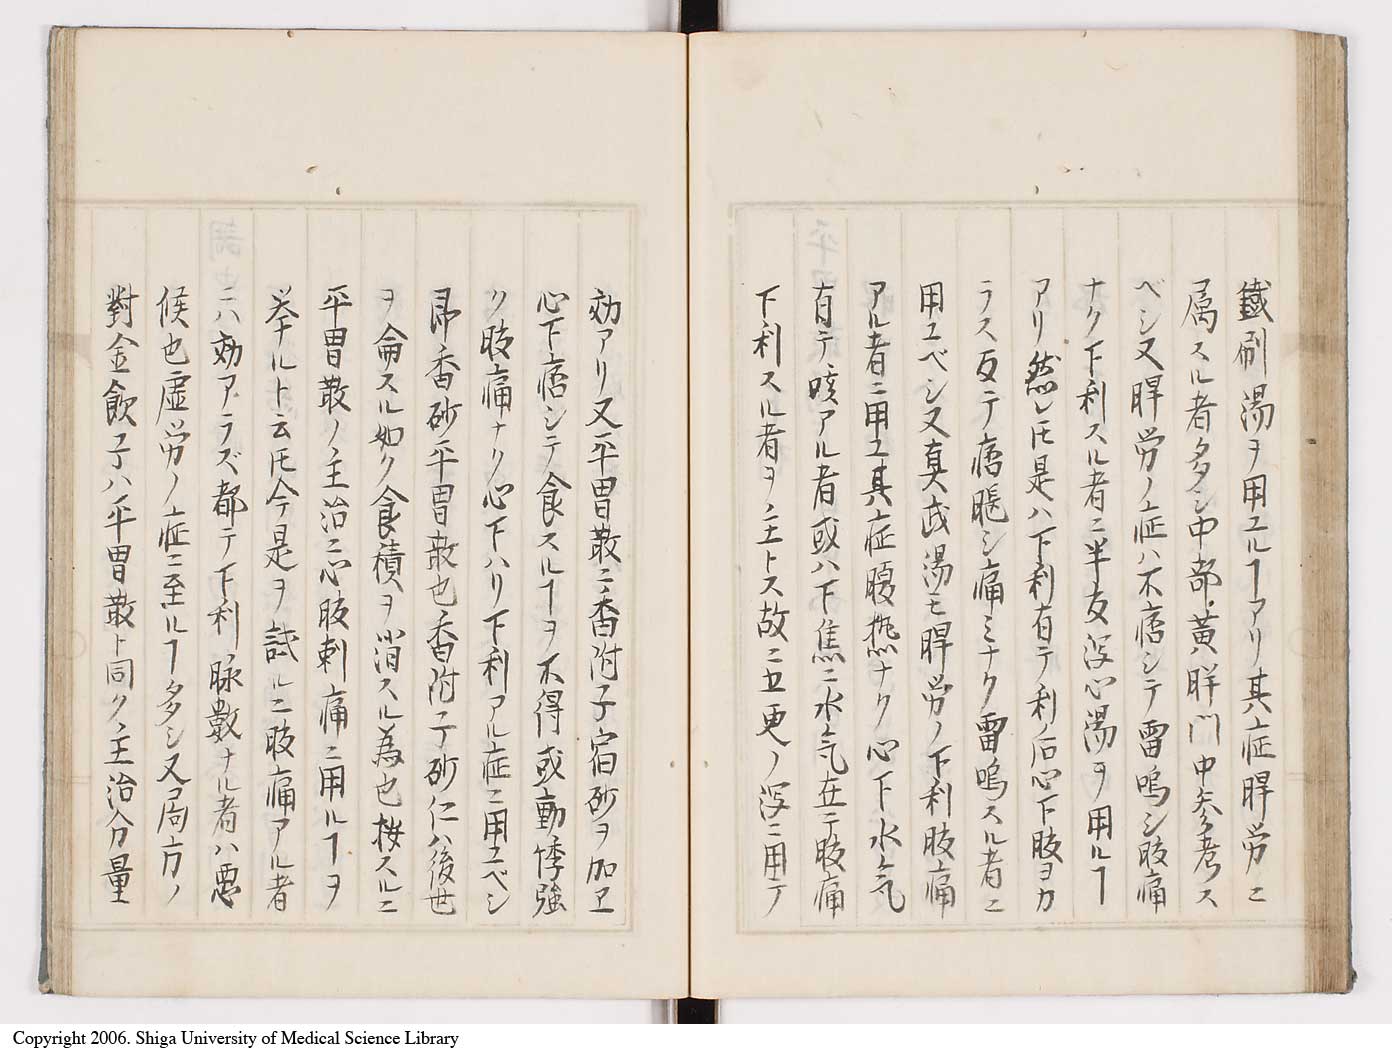 鐵刷湯ヲ用ユルヿアリ其症脾労ニ
属スル者多シ中部黄胖門中参考ス
ベシ又脾労ノ症ハ不痛シテ雷鳴シ腹痛
ナク下利スル者ニ半夏瀉心湯ヲ用ルヿ
アリ然レ𪜈是ハ下利有テ利ノ后心下腹ヨカ
ラス反テ痞鞕シ痛ミナク雷鳴スル者ニ
用ユベシ又真武湯モ脾労ノ下利腹痛
アル者ニ用ユ其症腹熱ナク心下水气
有テ咳アル者或ハ下焦ニ水气在テ腹痛
下利スル者ヲ主トス故ニ五更ノ瀉ニ用テ
効アリ又平胃散ニ香附子宿砂ヲ加ヱ
心下痞シテ食スルヿヲ不得或動悸強
ク腹痛ナク心下ハリ下利アル症ニ用ユベシ
即香砂平胃散也香附子砂仁ハ後世
ヲ侖スル如ク食積ヲ消スル為也按スルニ
平胃散ノ主治ニ心腹刺痛ニ用ルヿヲ
挙ルト云𪜈今是ヲ試ルニ腹痛アル者
ニハ効アラズ都テ下利脉數ナル者ハ悪
候也虚労ノ症ニ至ルヿ多シ又局方ノ
對金飲子ハ平胃散ト同ク主治分量
Copyright 2006. Shiga University of Medical Science Library